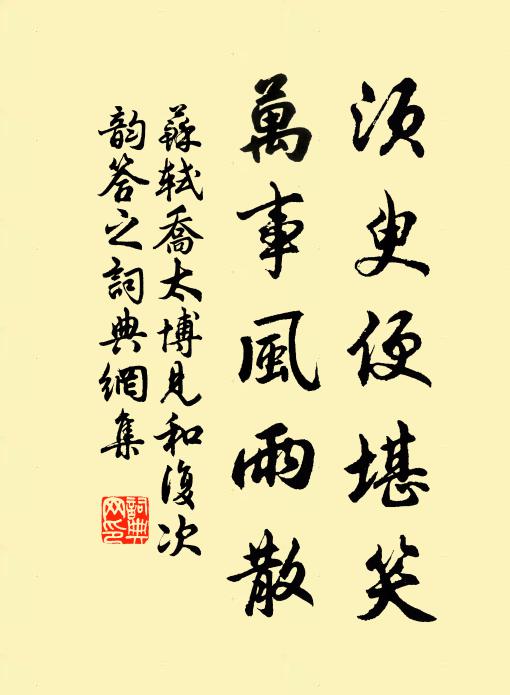 須臾便堪笑
萬事風雨散
蘇軾喬太博見和復次
韵答之詞典網集
詞典
网印